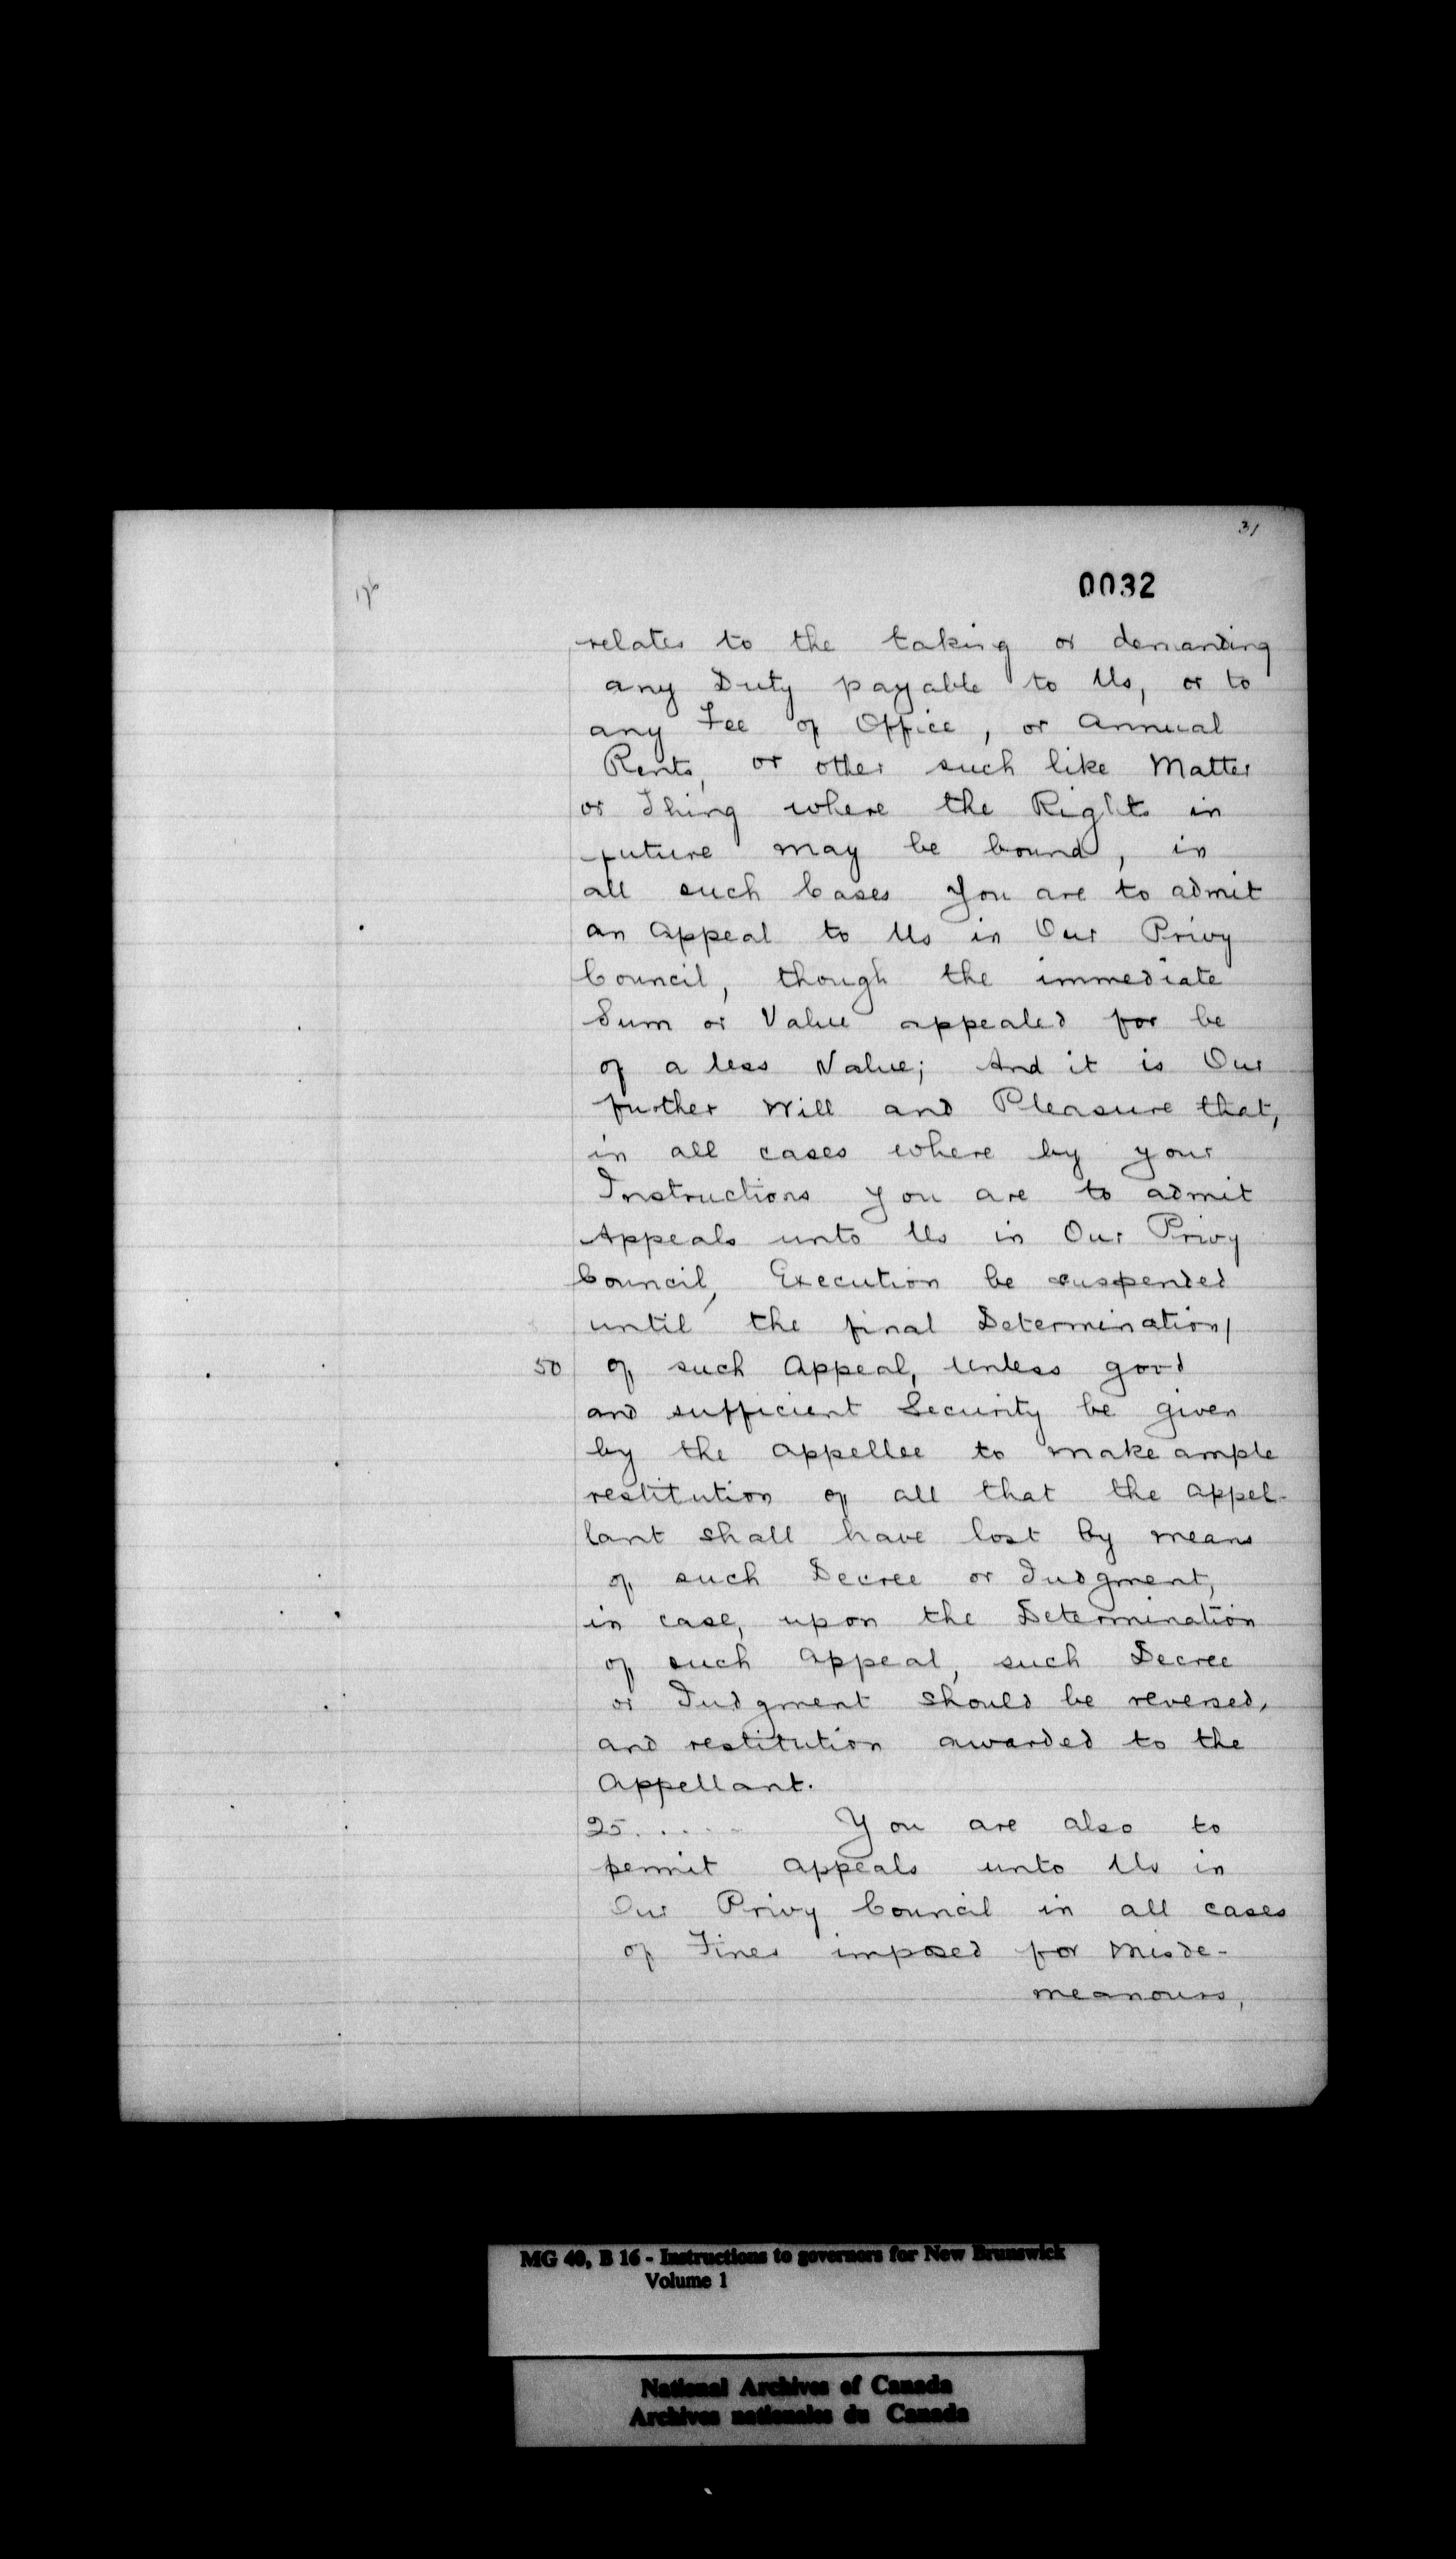 31
0032
relates to the taking or demanding
any Duty payable to Us, or to
any Fee of Office, or Annual
Rents, or other such like Matter
or Thing where the Rights in
future may be bound, in
all such Cases You are to admit
an Appeal to Us in Our Privy
Council, though the immediate
Sum or Value appealed for be
of a less Value; And it is Our
further Will and Pleasure that,
in all cases where by your
Instructions you are to admit
Appeals unto Us in Our Privy
Council, Execution be suspended
until the final Determination/
50 of such Appeal, unless good
and sufficient Security be given
by the Appellee to make ample
restitution of all that the Appel-
lant shall have lost by means
of such Decree or Judgment,
in case, upon the Determination
of such Appeal, such Decree
or Judgment should be reversed,
and restitution awarded to the
Appellant.
25..... You are also to
permit Appeals unto Us in
Our Privy Council in all cases
of Fines imposed for Misde-
meanours,
MG 40, B 16 - Instructions to governors for New Brunswick
Volume 1
National Archives of Canada
Archives nationales du Canada